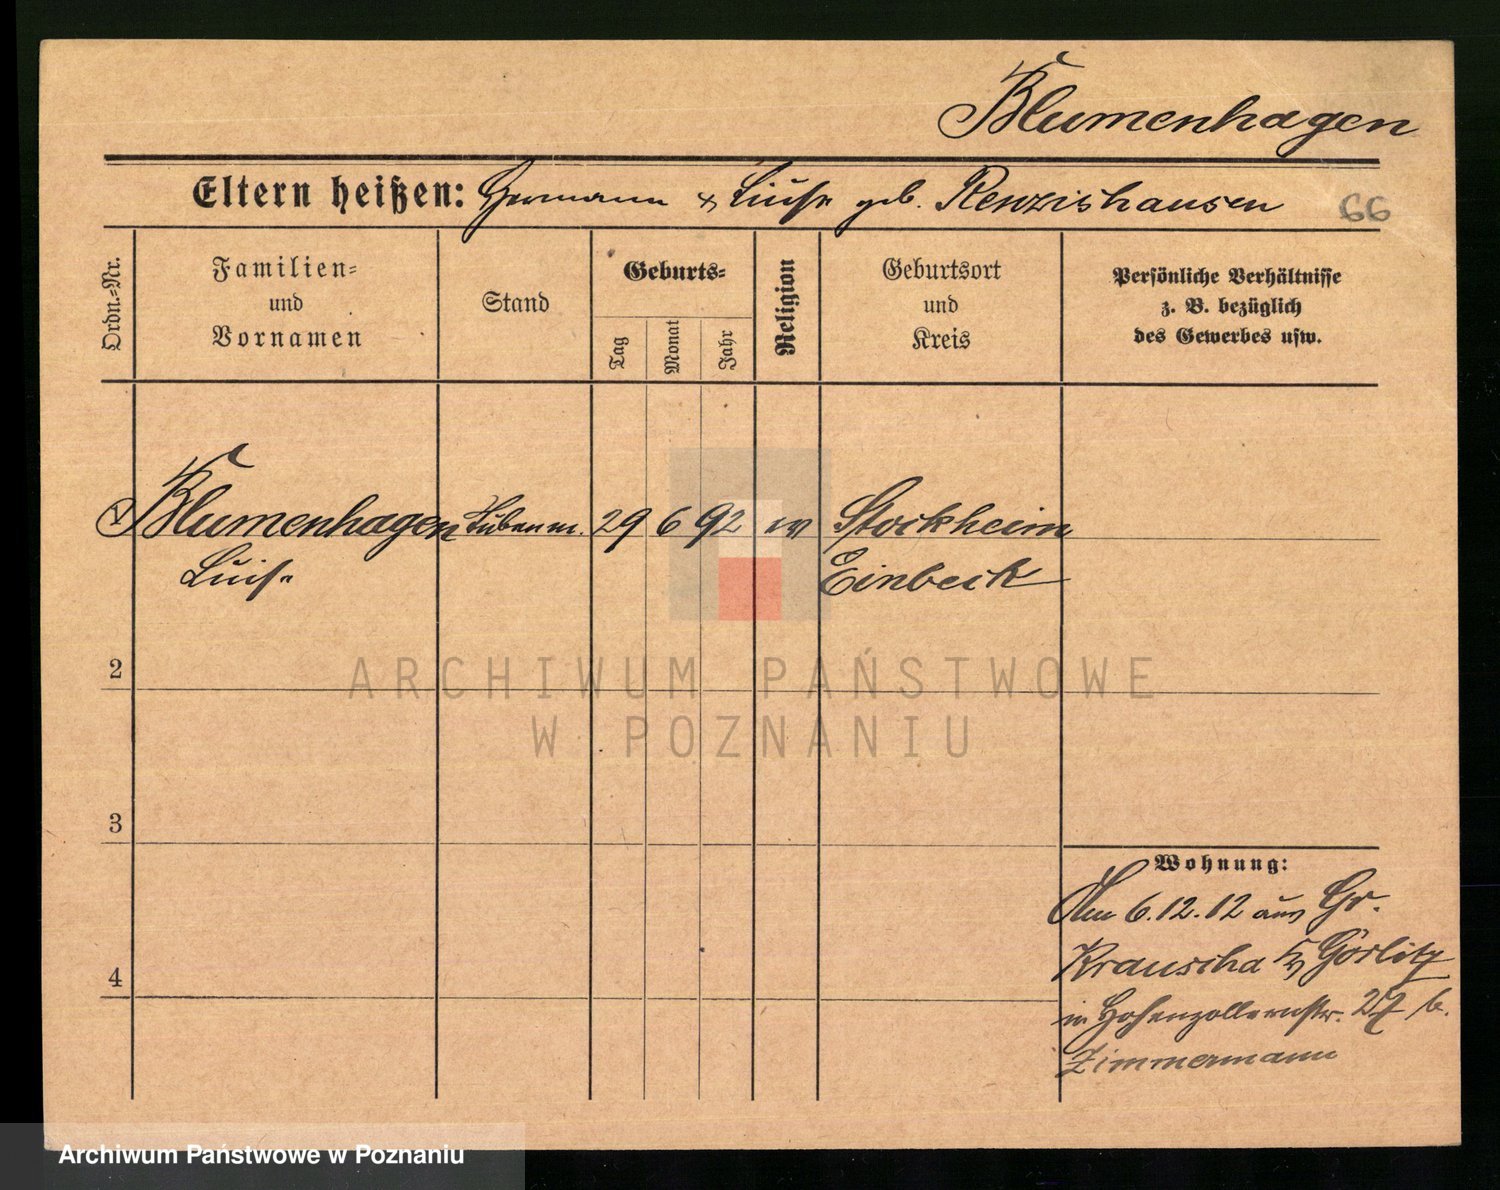 Blumenhagen
Eltern heißen: Hermann & Luise geb. Renzishausen 66
Ordn.=Nr.
Familien=
und
Vornamen
Stand
Geburts=
Tag
Monat
Jahr
Religion
Geburtsort
und
Kreis
Persönliche Verhältnisse
z. B. bezüglich
des Gewerbes usw.
1 Blumenhagen Stubenm. 29 6 92 ev Stockheim
Luise Einbeck
2
3
4
Wohnung:
Am 6.12.12 aus Gr.
Krauscha b/ Görlitz
in Hohenzollernstr. 27 b.
Zimmermann
ARCHIWUM PAŃSTWOWE
W POZNANIU
Archiwum Państwowe w Poznaniu